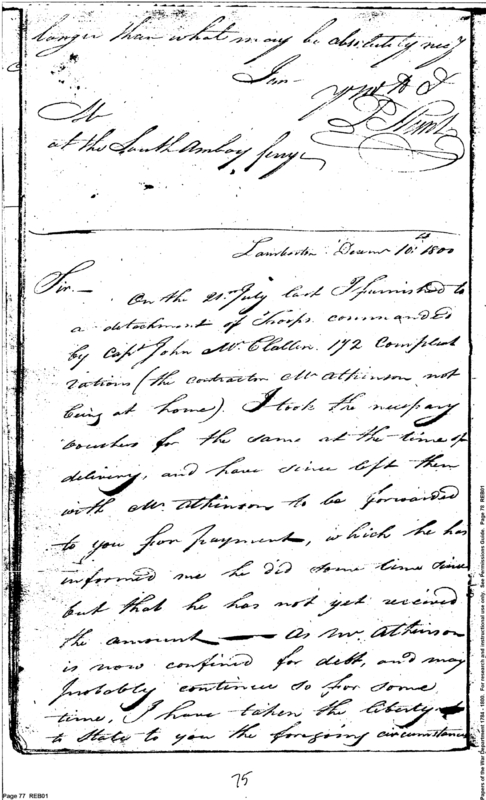 longer than what may be absolutely necsy
I am
P Hunt
Mr
at the South Amboy ferry
Lamberton Decemr 10th 1800
Sir,
On the 21st July last I furnished to
a detachment of Troops commanded
by Capt John McClallen 172 compleat
rations (the contractor Mr Atkinson not
being at home). I took the necessary
vouchers for the same at the time of
delivery, and have since left them
with Mr Atkinson to be forwarded
to you for payment, which he has
informed me he did some time since
but that he has not yet received
the amount — As Mr. Atkinson
is now confined for debt, and may
probably continue so for some
time, I have taken the liberty
to State to you the foregoing circumstances
75
Page 77 REB01
Papers of the War Department 1784 - 1800. For research and instructional use only. See Permissions Guide. Page 76 REB01